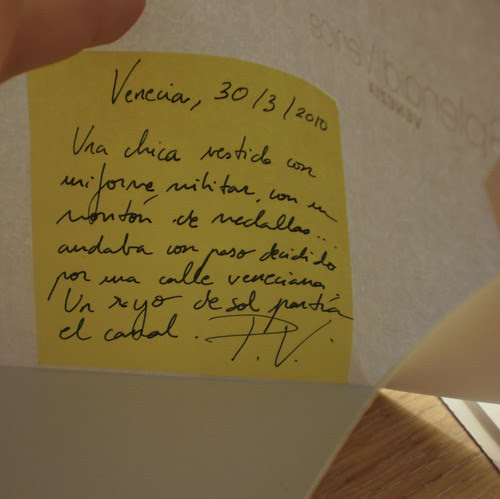 splendid venice
VENEZIA
Venecia, 30/3/2010
Una chica vestida con
uniforme militar, con un
montón de medallas...
andaba con paso decidido
por una calle veneciana.
Un rayo de sol partía
el canal. P.V.